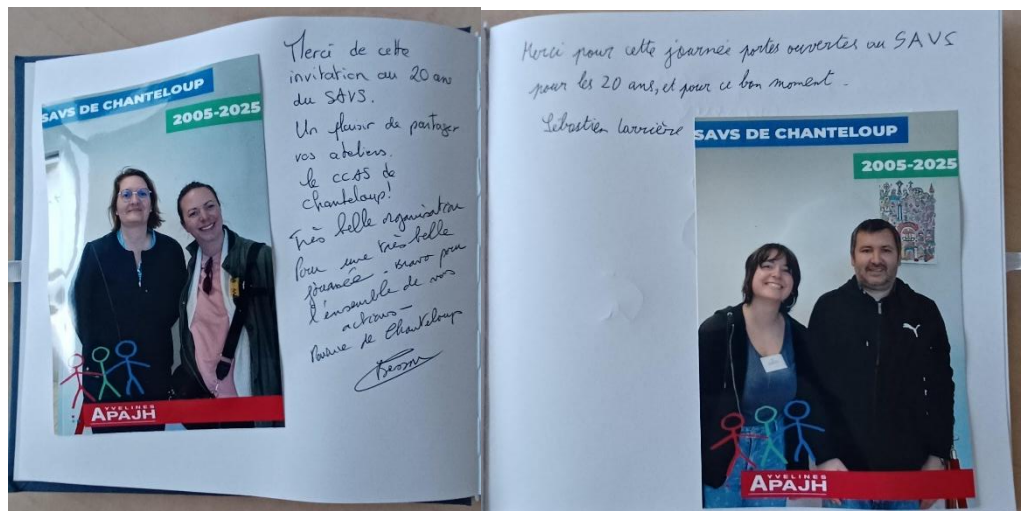 SAVS DE CHANTELOUP
2005-2025
YVELINES
APAJH
Merci de cette
invitation au 20 ans
du SAVS.
Un plaisir de partager
vos ateliers.
le CCAS de
chanteloup!
Très belle organisation
Pour une très belle
journée - Bravo pour
l'ensemble de vos
actions -
Mairie de Chanteloup
Merci pour cette journée portes ouvertes au SAVS
pour les 20 ans, et pour ce bon moment.
Sébastien Larrière
SAVS DE CHANTELOUP
2005-2025
YVELINES
APAJH